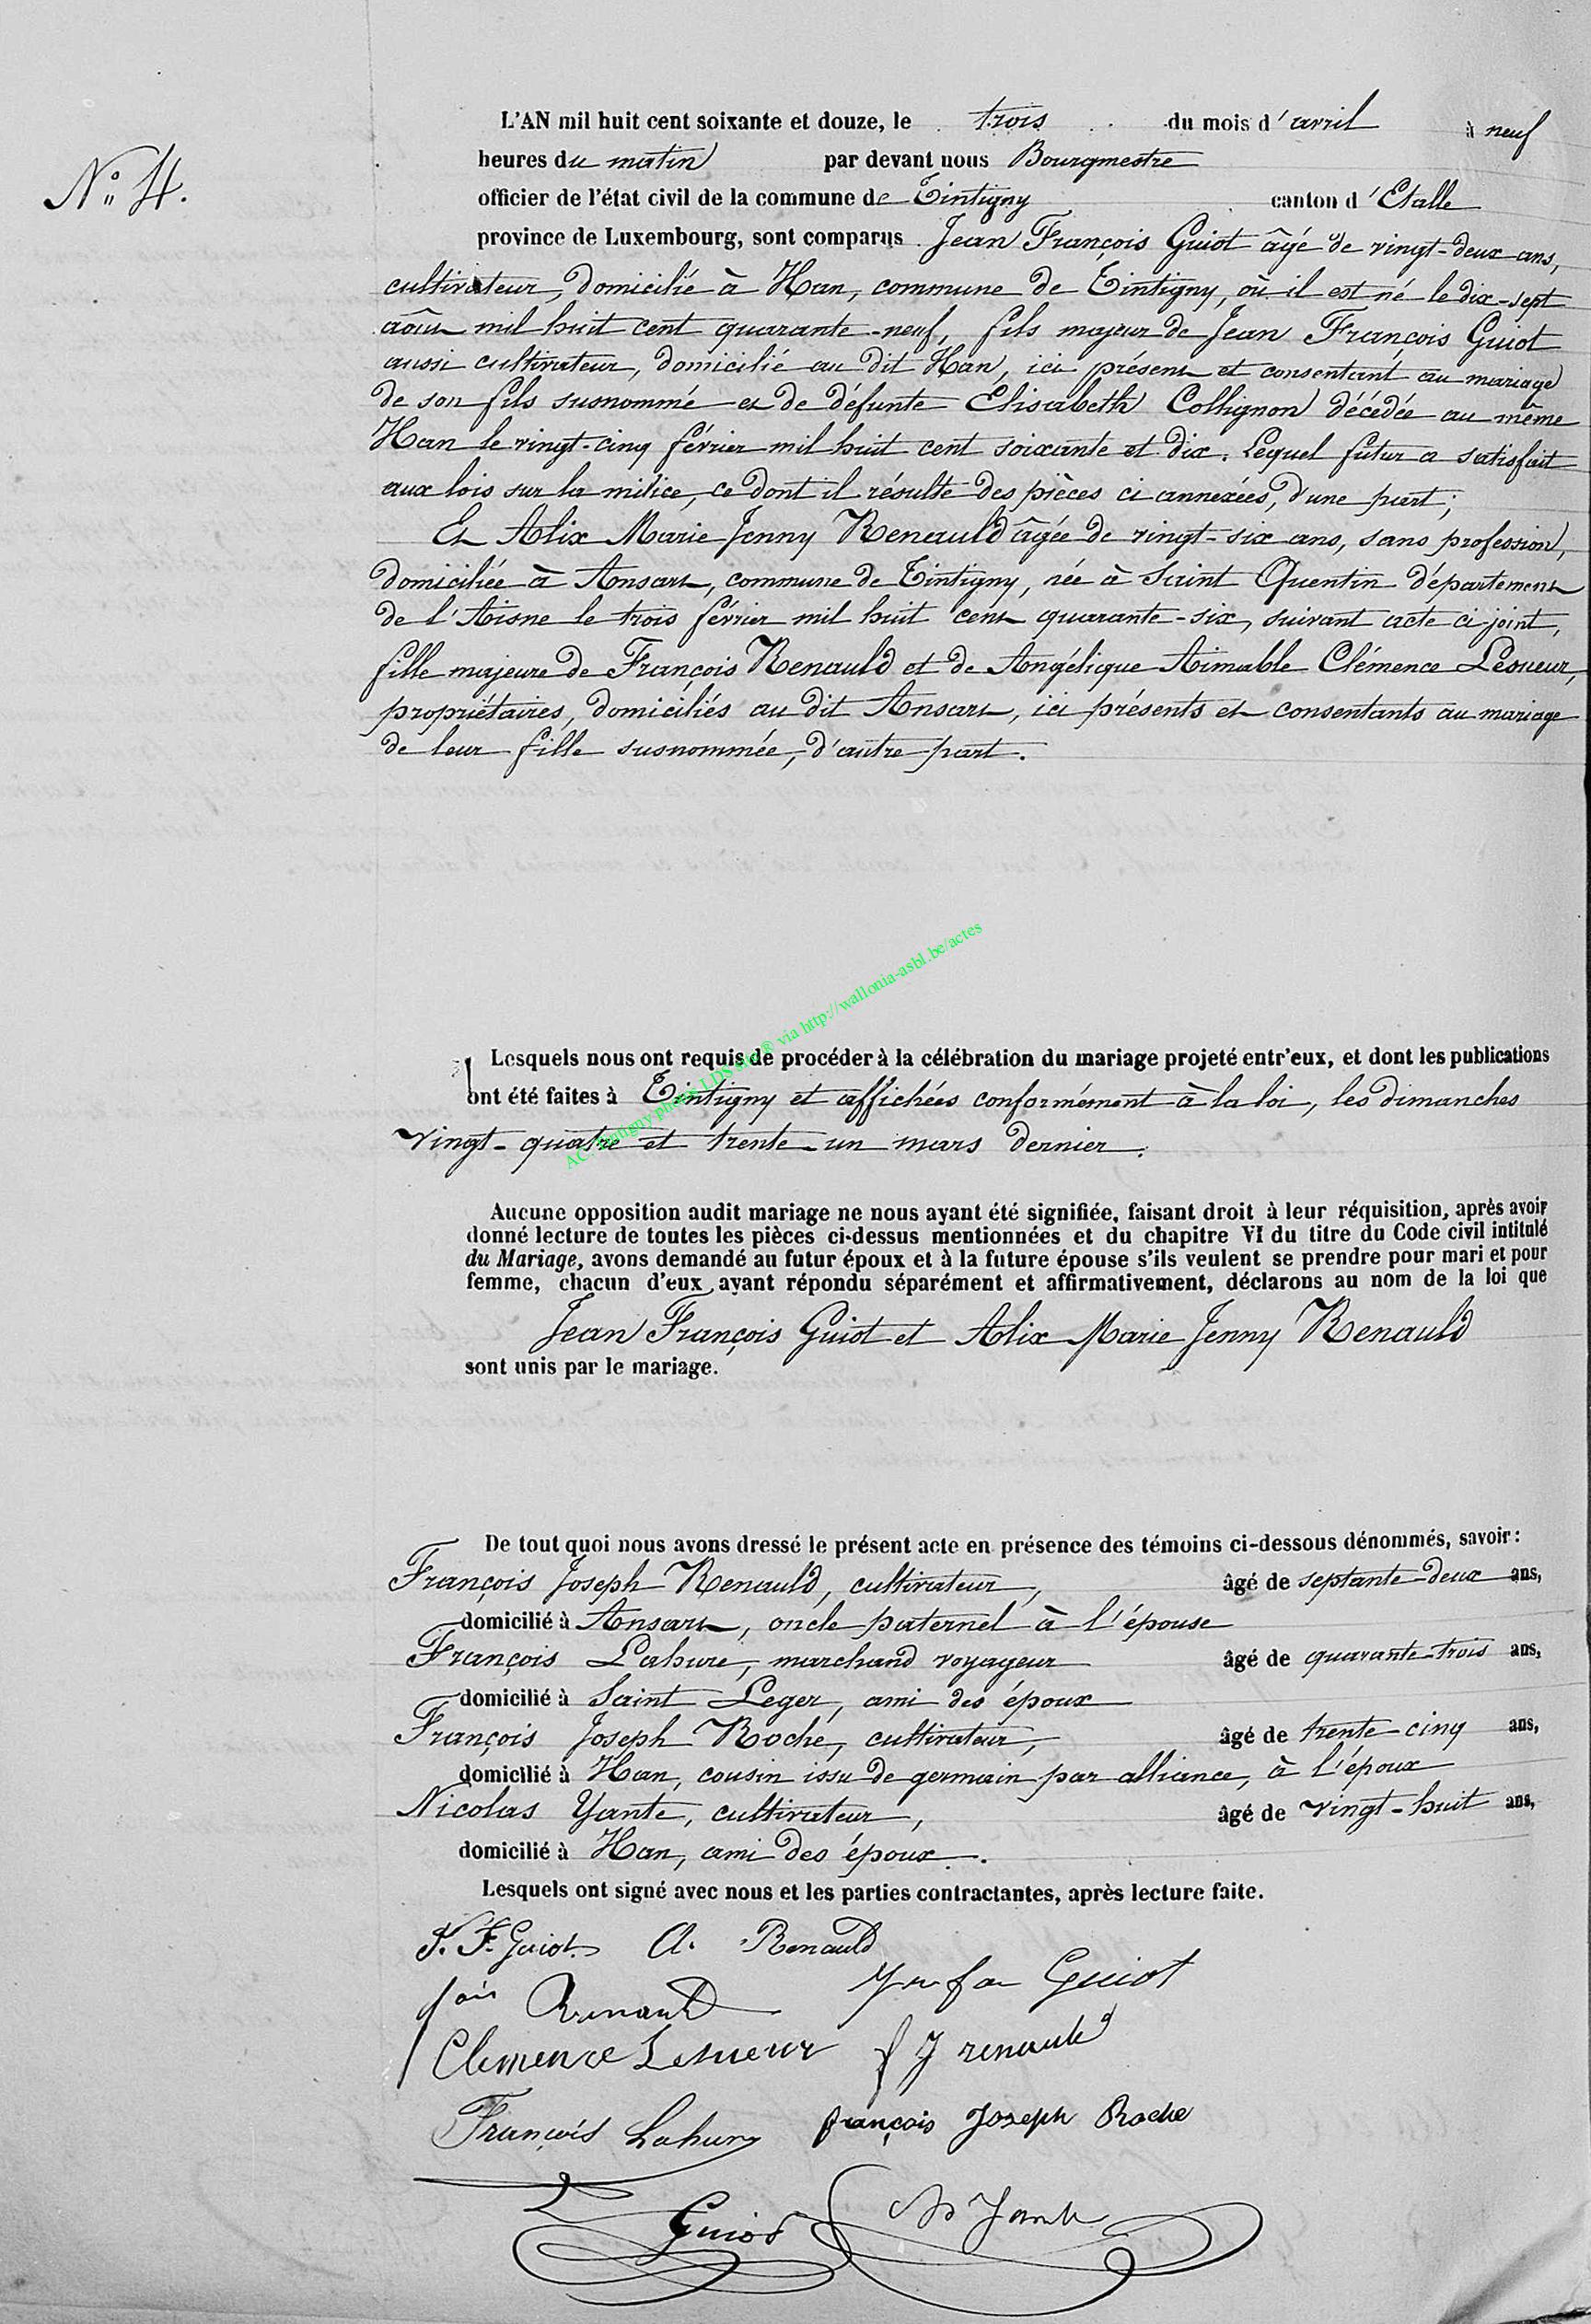 N° 4.
L'AN mil huit cent soixante et douze, le trois du mois d'avril à neuf
heures du matin par devant nous Bourgmestre
officier de l'état civil de la commune de Tintigny canton d'Etalle
province de Luxembourg, sont comparus Jean François Guiot âgé de vingt-deux ans,
cultivateur, domicilié à Han, commune de Tintigny, où il est né le dix-sept
août mil huit cent quarante-neuf, fils majeur de Jean François Guiot
aussi cultivateur, domicilié au dit Han, ici présent et consentant au mariage
de son fils susnommé et de défunte Elisabeth Collignon décédée au même
Han le vingt-cinq février mil huit cent soixante et dix. Lequel futur a satisfait
aux lois sur la milice, ce dont il résulte des pièces ci annexées, d'une part;
Et Alix Marie Jenny Renauld âgée de vingt-six ans, sans profession,
domiciliée à Ansart, commune de Tintigny, née à Saint Quentin département
de l'Aisne le trois février mil huit cent quarante-six, suivant acte ci joint,
fille majeure de François Renauld et de Angélique Aimable Clémence Lesueur,
propriétaires, domiciliés au dit Ansart, ici présents et consentants au mariage
de leur fille susnommée, d'autre part.
AC Tintigny photos LDS site ® via http://wallonia-asbl.be/actes
Lesquels nous ont requis de procéder à la célébration du mariage projeté entr'eux, et dont les publications
ont été faites à Tintigny et affichées conformément à la loi, les dimanches
vingt-quatre et trente-un mars dernier.
Aucune opposition audit mariage ne nous ayant été signifiée, faisant droit à leur réquisition, après avoir
donné lecture de toutes les pièces ci-dessus mentionnées et du chapitre VI du titre du Code civil intitulé
du Mariage, avons demandé au futur époux et à la future épouse s'ils veulent se prendre pour mari et pour
femme, chacun d'eux ayant répondu séparément et affirmativement, déclarons au nom de la loi que
Jean François Guiot et Alix Marie Jenny Renauld
sont unis par le mariage.
De tout quoi nous avons dressé le présent acte en présence des témoins ci-dessous dénommés, savoir:
François Joseph Renauld, cultivateur, âgé de septante-deux ans,
domicilié à Ansart, oncle paternel à l'épouse
François Lahure, marchand voyageur âgé de quarante-trois ans,
domicilié à Saint Leger, ami des époux
François Joseph Roche, cultivateur, âgé de trente-cinq ans,
domicilié à Han, cousin issu de germain par alliance, à l'époux
Nicolas Yante, cultivateur, âgé de vingt-huit ans,
domicilié à Han, ami des époux.
Lesquels ont signé avec nous et les parties contractantes, après lecture faite.
J. F. Guiot A. Renauld
fois Renauld Jn fois Guiot
Clemence Lesueur f J renauld
François Lahure françois Joseph Roche
Guiot N Yante